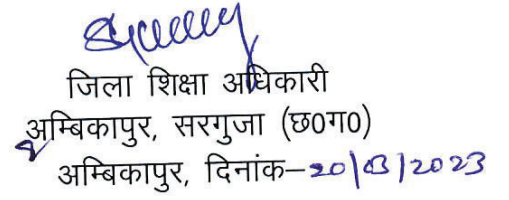 जिला शिक्षा अधिकारी
अम्बिकापुर, सरगुजा (छ०ग०)
अम्बिकापुर, दिनांक–20/03/2023